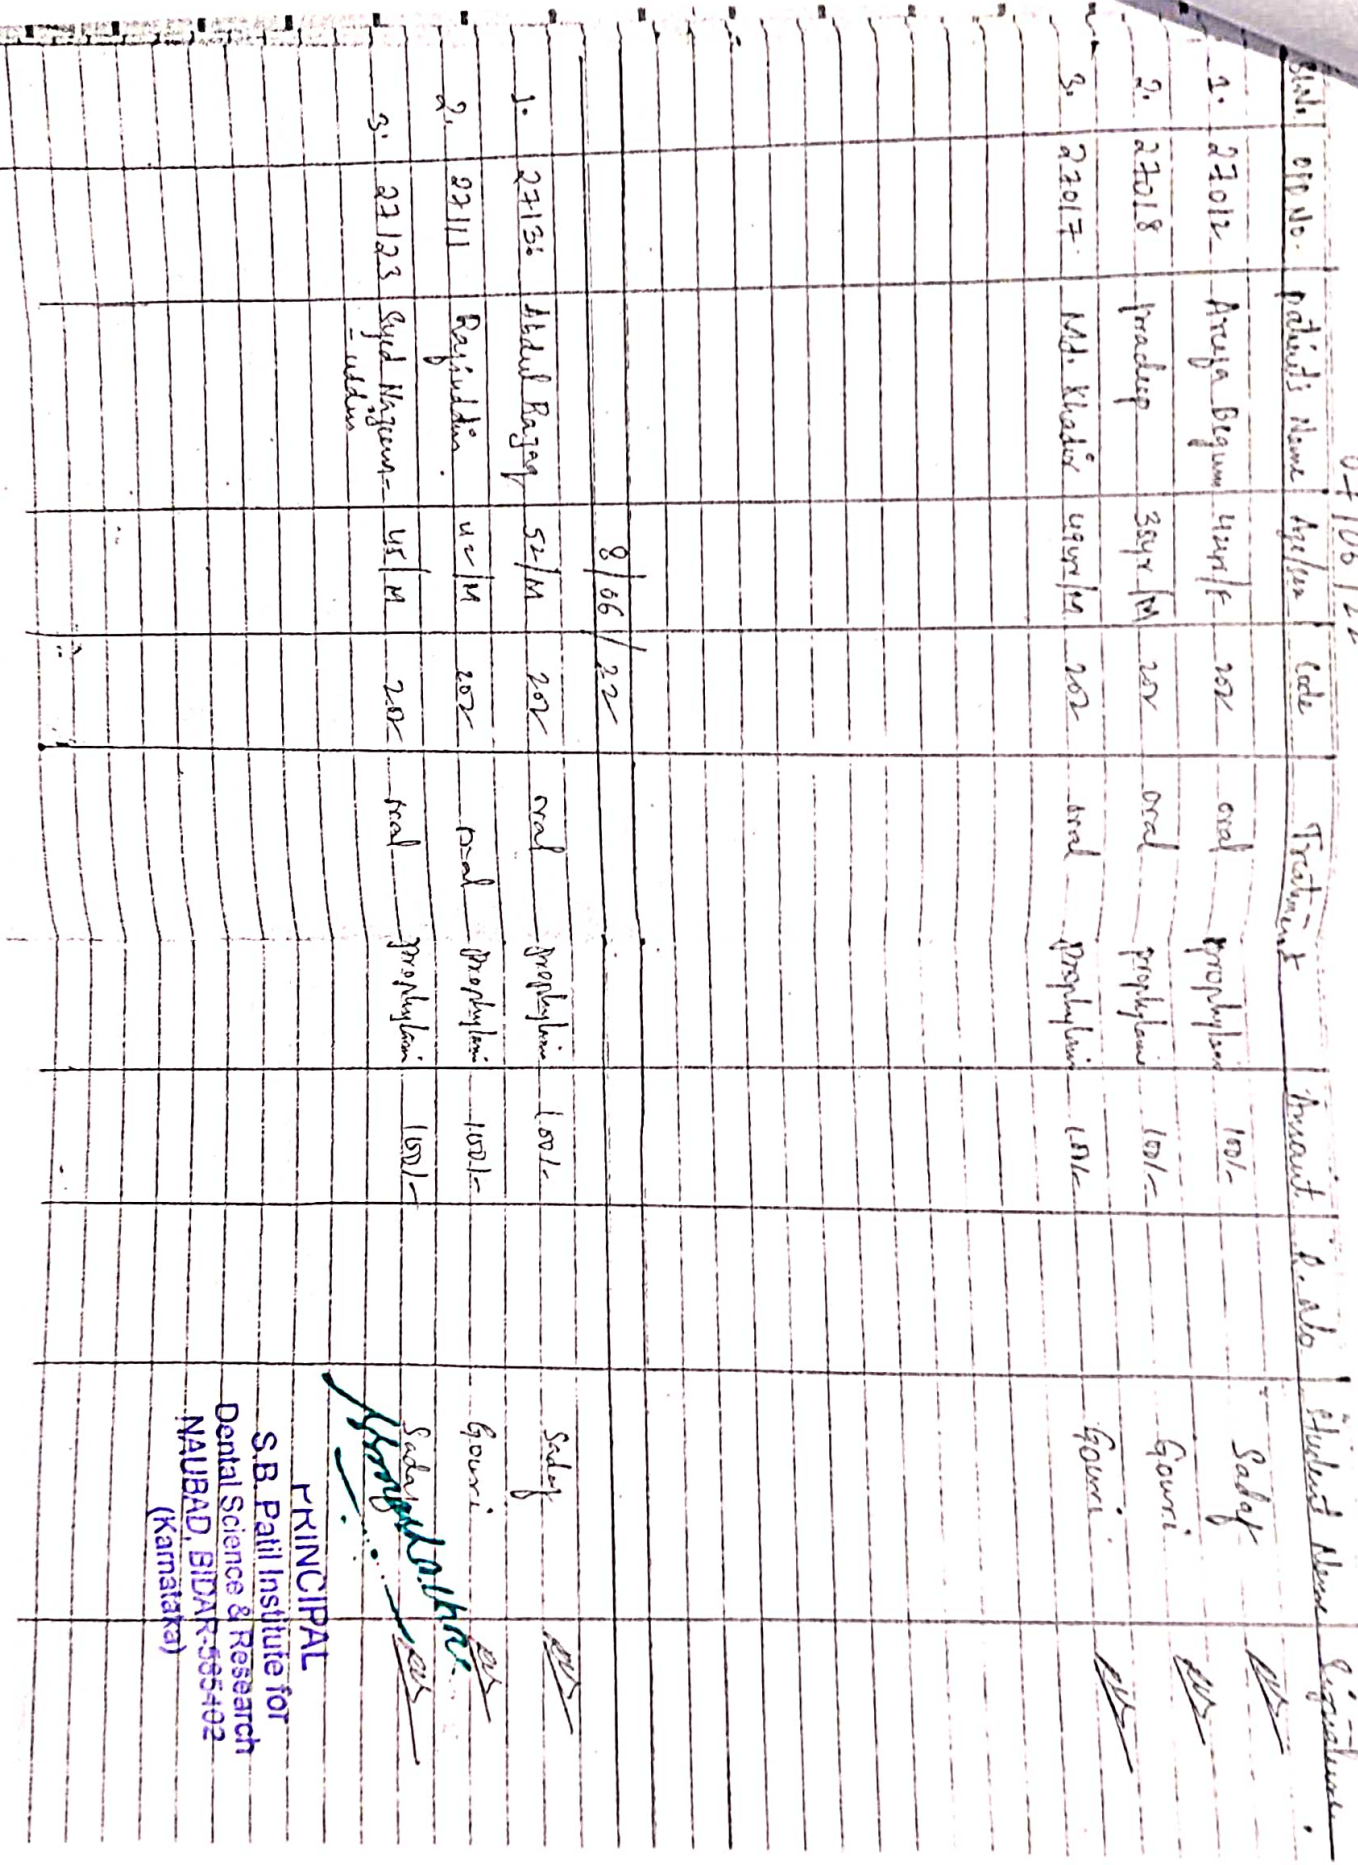 07/06/22
Sl.No. OPD No. patient's Name Age/sex Code Treatment Amount R. No Student Name Signature
1. 27012 Begum 42yr/F 202 oral prophylaxis 100/- Sadaf
2. 27018 pradeep 35yr/M 202 oral prophylaxis 100/- Gouri
3. 27017 Md. Khadir 49yr/M 202 oral prophylaxis 100/- Gouri
8/06/22
1. 27136 Abdul Razaq 52/M 202 oral prophylaxis 100/- Sadaf
2. 27111 Rajiuddin 42/M 202 oral prophylaxis 100/- Gouri
3. 27123 Syed Nazeem- 45/M 202 oral prophylaxis 100/- Sadaf
uddin
PRINCIPAL
S.B. Patil Institute for
Dental Science & Research
NAUBAD, BIDAR-585402
(Karnataka)